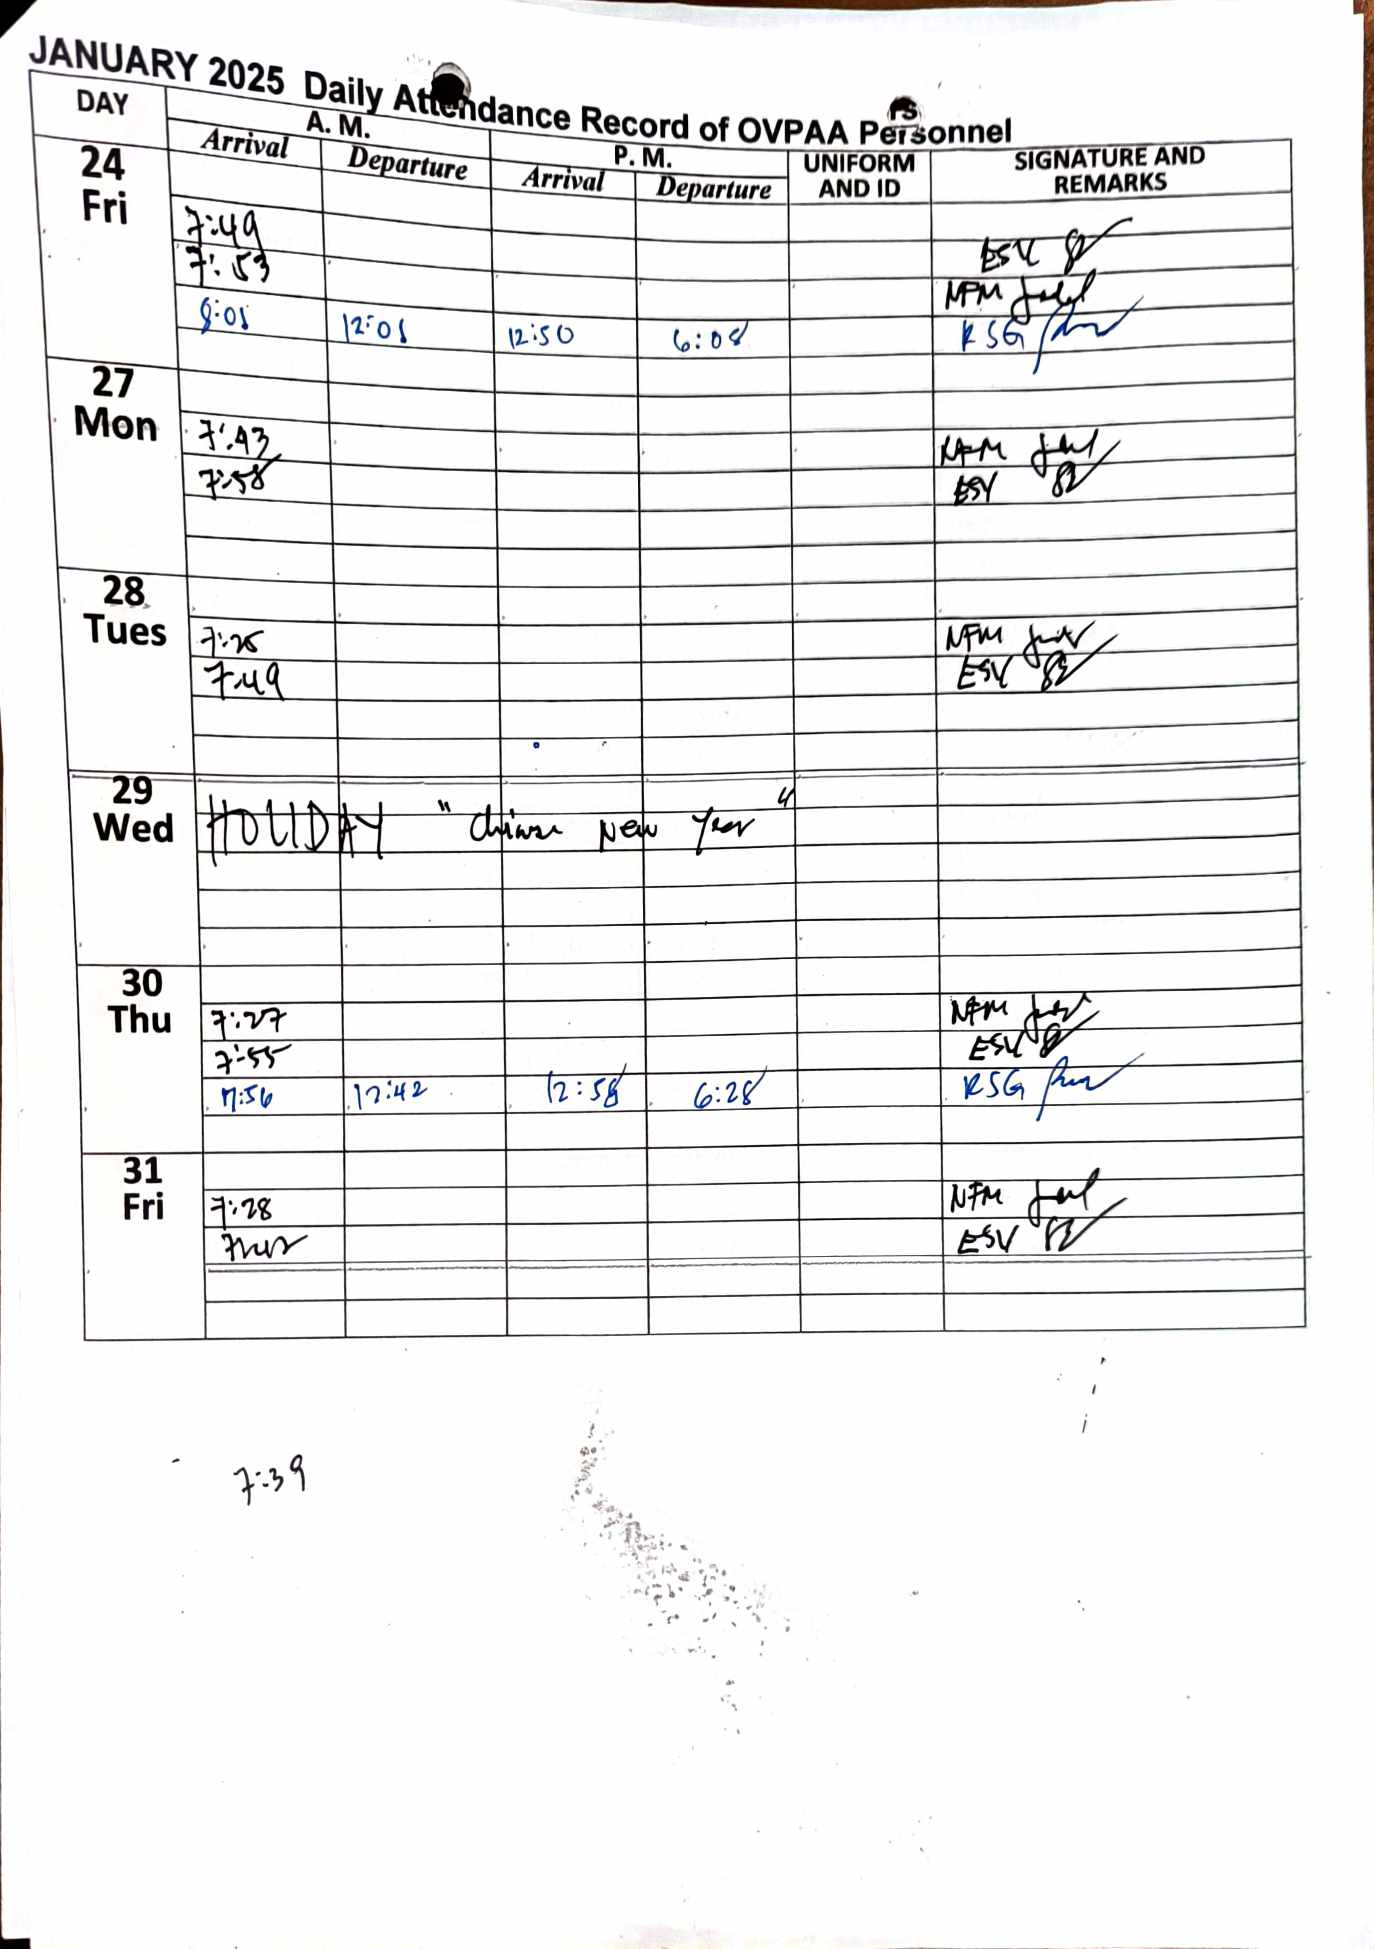 JANUARY 2025 Daily Attendance Record of OVPAA Personnel
DAY
A. M.
P. M.
UNIFORM AND ID
SIGNATURE AND REMARKS
Arrival Departure Arrival Departure
24
Fri
7:49 ESV
7:53 NFM
8:01 12:01 12:50 6:08 RSG
27
Mon
7:43 NFM
7:58 ESV
28
Tues
7:25 NFM
7:49 ESV
29
Wed
HOLIDAY "Chinese New Year"
30
Thu
7:27 NFM
7:55 ESV
7:56 12:42 12:58 6:28 RSG
31
Fri
7:28 NFM
ESV
7:39